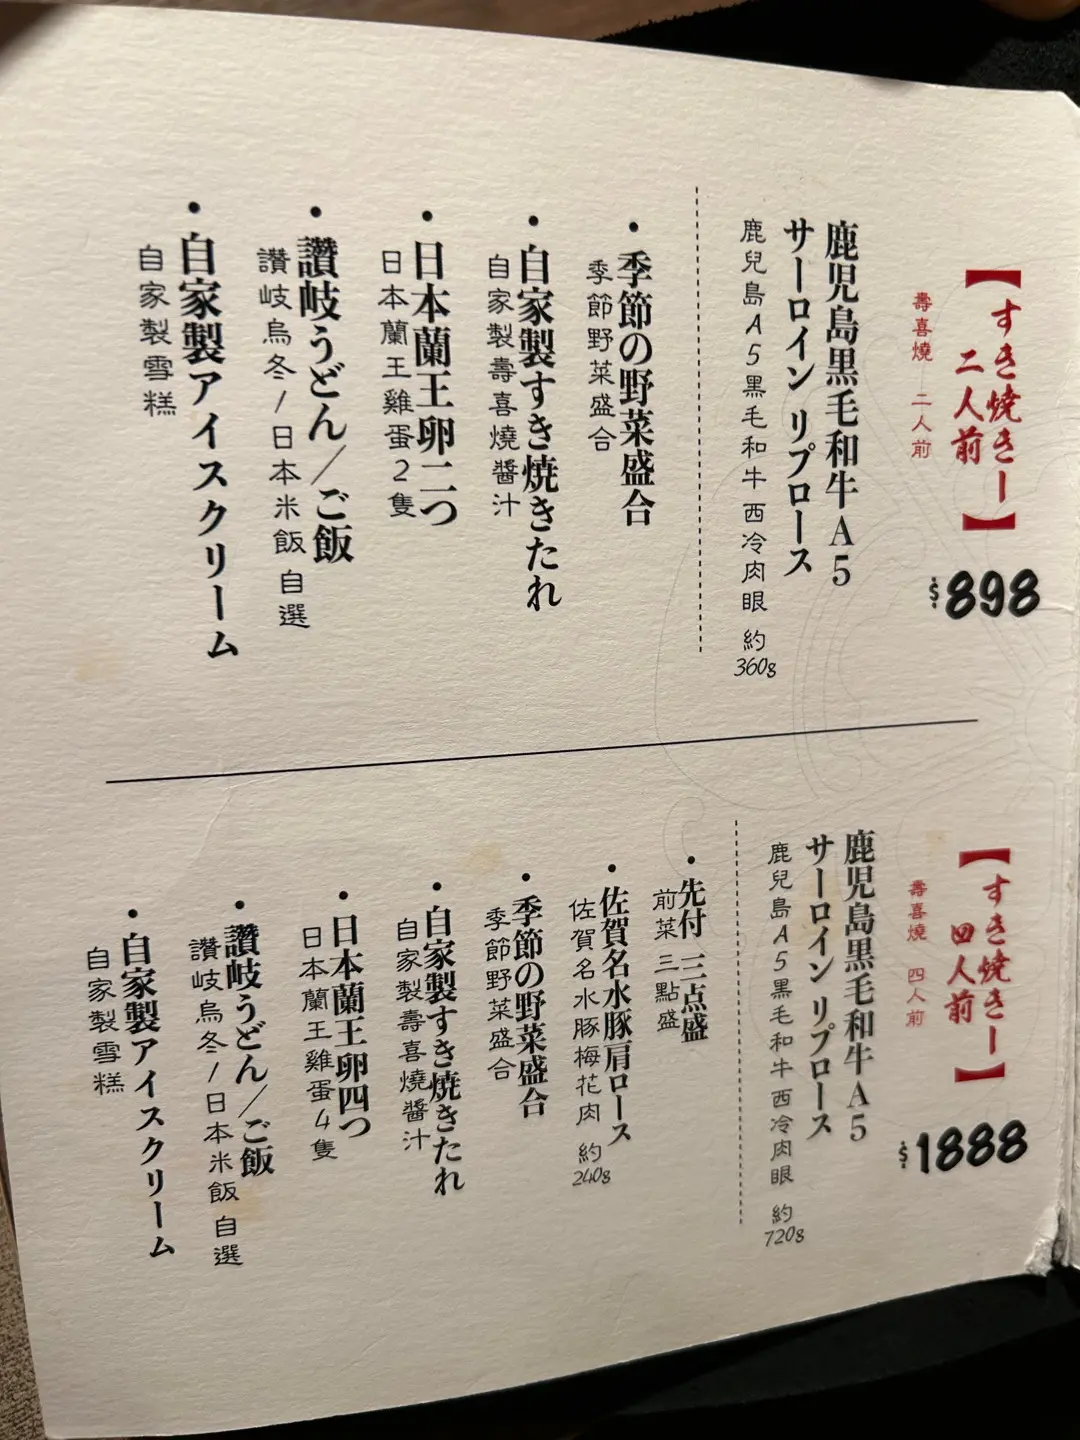 【すき焼きー
二人前】
壽喜燒 二人前
$898
鹿児島黒毛和牛A5
サーロイン リブロース
鹿兒島A5黑毛和牛西冷肉眼 約360g
・季節の野菜盛合
季節野菜盛合
・自家製すき焼きたれ
自家製壽喜燒醬汁
・日本蘭王卵二つ
日本蘭王雞蛋2隻
・讃岐うどん/ご飯
讚岐烏冬/日本米飯 自選
・自家製アイスクリーム
自家製雪糕
【すき焼きー
四人前】
壽喜燒 四人前
$1888
鹿児島黒毛和牛A5
サーロイン リブロース
鹿兒島A5黑毛和牛西冷肉眼 約720g
・先付 三点盛
前菜三點盛
・佐賀名水豚肩ロース
佐賀名水豚梅花肉 約240g
・季節の野菜盛合
季節野菜盛合
・自家製すき焼きたれ
自家製壽喜燒醬汁
・日本蘭王卵四つ
日本蘭王雞蛋4隻
・讃岐うどん/ご飯
讚岐烏冬/日本米飯 自選
・自家製アイスクリーム
自家製雪糕